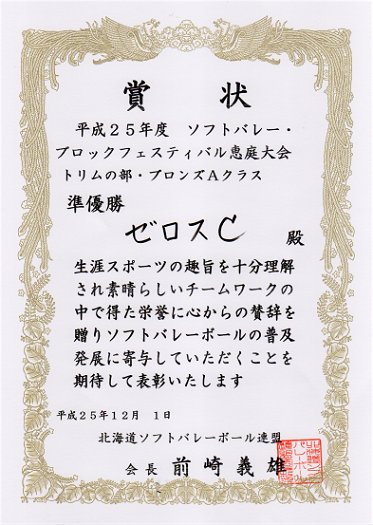 賞状
平成25年度 ソフトバレー・
ブロックフェスティバル恵庭大会
トリムの部・ブロンズAクラス
準優勝
ゼロスC 殿
生涯スポーツの趣旨を十分理解
され素晴らしいチームワークの
中で得た栄誉に心からの賛辞を
贈りソフトバレーボールの普及
発展に寄与していただくことを
期待して表彰いたします
平成25年12月 1日
北海道ソフトバレーボール連盟
会長 前崎義雄